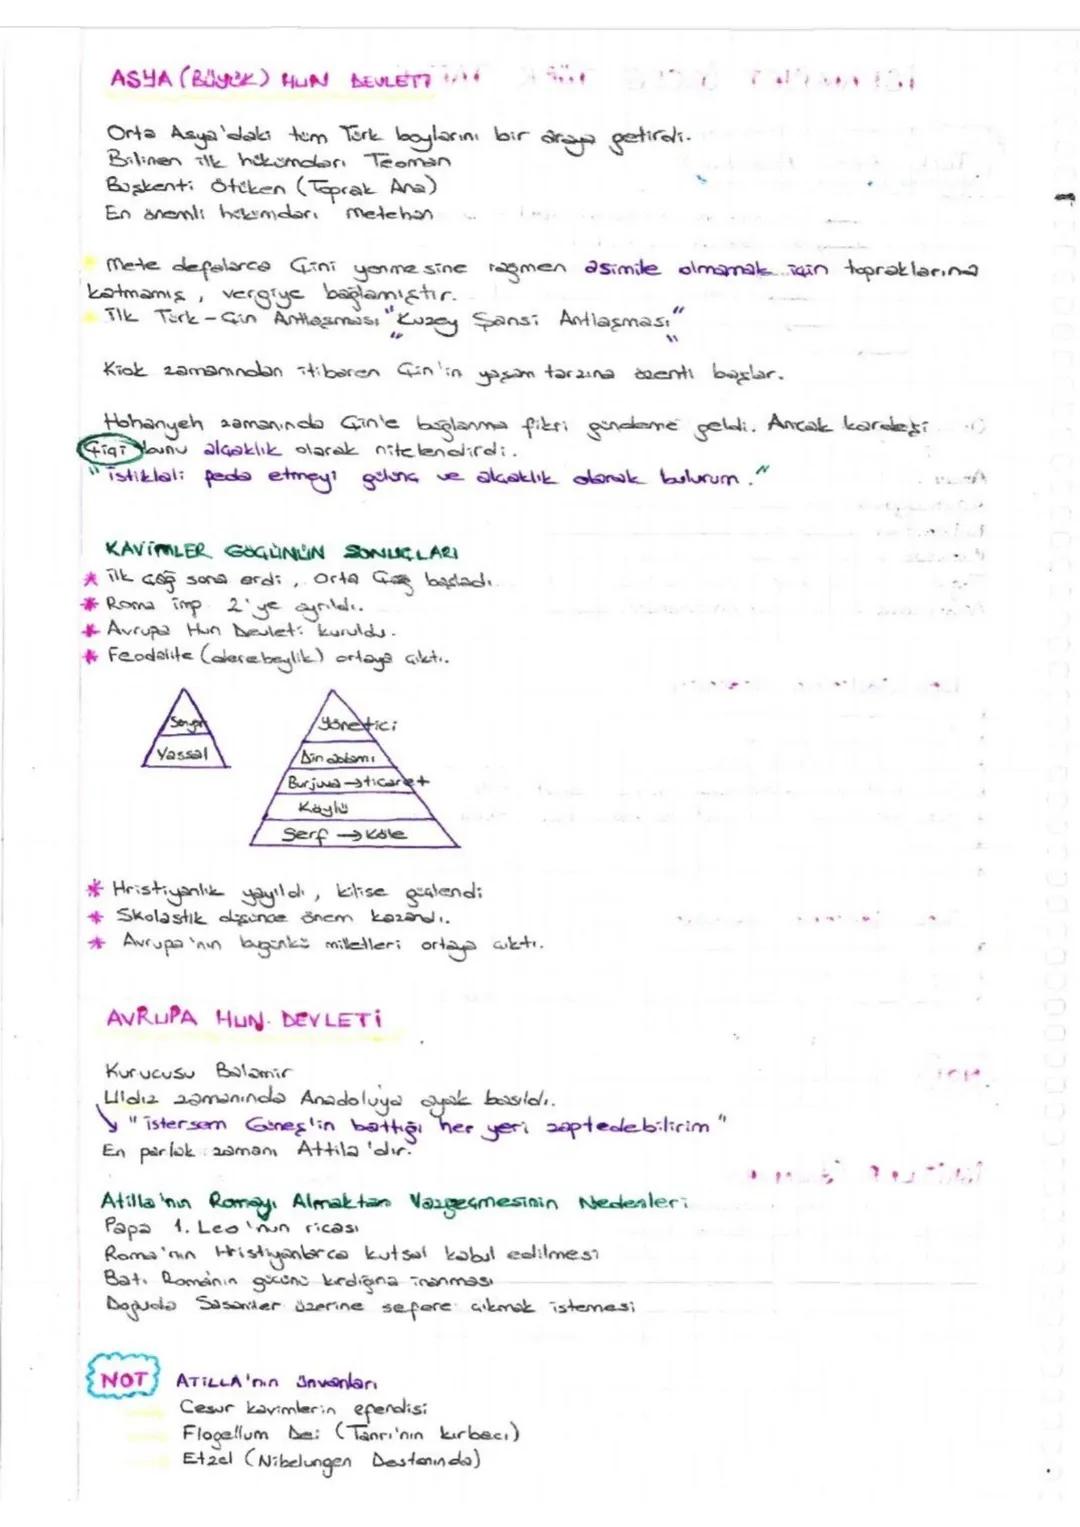 ASYA (BÜYÜK) HUN DEVLETİ
Orta Asya'daki tüm Türk boylarını bir araya getirdi.
Bilinen ilk hükümdarı Teoman
Başkenti Ötüken (Toprak Ana)
En önemli hükümdarı Metehan
Mete defalarca Çini yenmesine rağmen asimile olmamak için topraklarına
katmamış, vergiye bağlamıştır.
İlk Türk-Çin Antlaşması "Kuzey Şansi Antlaşması"
Kiok zamanından itibaren Çin'in yaşam tarzına özenti başlar.
Hohanyeh zamanında Çin'e bağlanma fikri gündeme geldi. Ancak kardeşi
Çiçi bunu alçaklık olarak nitelendirdi.
"istiklali feda etmeyi gülünç ve alçaklık olarak bulurum."
KAVİMLER GÖÇÜNÜN SONUÇLARI
* İlk Çağ sona erdi, Orta Çağ başladı.
* Roma imp. 2'ye ayrıldı.
* Avrupa Hun Devleti kuruldu.
* Feodalite (derebeylik) ortaya çıktı.
Senyör
Vassal
Yönetici
Din adamı
Burjuva → ticaret
Köylü
Serf → Köle
* Hristiyanlık yayıldı, kilise güçlendi
* Skolastik düşünce önem kazandı.
* Avrupa'nın bugünkü milletleri ortaya çıktı.
AVRUPA HUN DEVLETİ
Kurucusu Balamir
Uldız zamanında Anadoluya ayak basıldı.
"istersem Güneş'in battığı her yeri zaptedebilirim"
En parlak zamanı Attila'dır.
Atilla'nın Romayı Almaktan Vazgeçmesinin Nedenleri
Papa 1. Leo'nun ricası
Roma'nın Hristiyanlarca kutsal kabul edilmesi
Batı Roma'nın gücünü kırdığına inanması
Doğuda Sasaniler üzerine sefere çıkmak istemesi
NOT ATİLLA'nın ünvanları
Cesur kavimlerin efendisi
Flogellum Dei (Tanrı'nın kırbacı)
Etzel (Nibelungen Destanında)